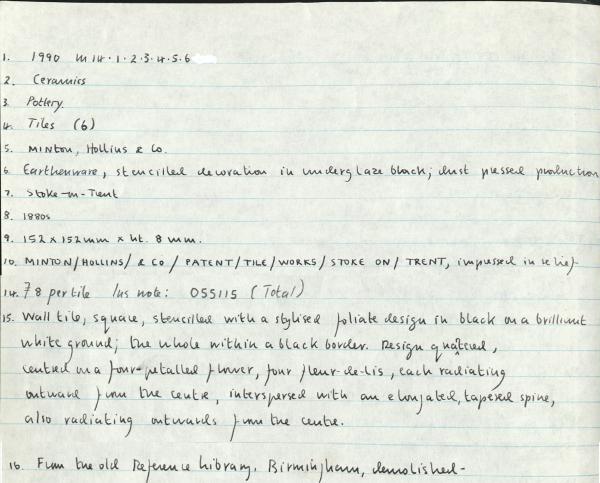 1. 1990 M14.1.2.3.4.5.6
2. Ceramics
3. Pottery.
4. Tiles (6)
5. MINTON, Hollins & Co.
6. Earthenware, stencilled decoration in underglaze black; dust pressed production
7. Stoke-on-Trent
8. 1880s
9. 152 x 152mm x ht. 8 mm.
10. MINTON/HOLLINS/ & CO / PATENT/TILE/WORKS/ STOKE ON/ TRENT, impressed in relief
14. 78 per tile Ins note: 055115 (Total)
15. Wall tile, square, stencilled with a stylised foliate design in black on a brilliant
white ground; the whole within a black border. Design quatred,
centred on a four-petalled flower, four fleur-de-lis, each radiating
outward from the centre, interspersed with an elongated, tapered spine,
also radiating outwards from the centre.
16. From the old Reference Library, Birmingham, demolished-